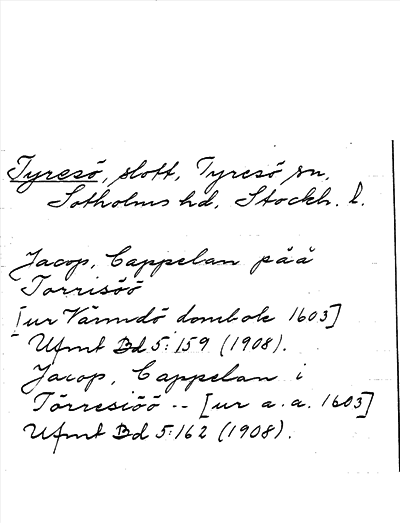 Tyresö, slott, Tyresö sn,
Sotholms hd, Stockh. l.
Jacop, Cappelan påå
Torrisöö
[ur Värmdö dombok 1603]
Ufmt Bd 5:159 (1908).
Jacop, Cappelan i
Törresiöö -- [ur a. a. 1603]
Ufmt Bd 5:162 (1908).